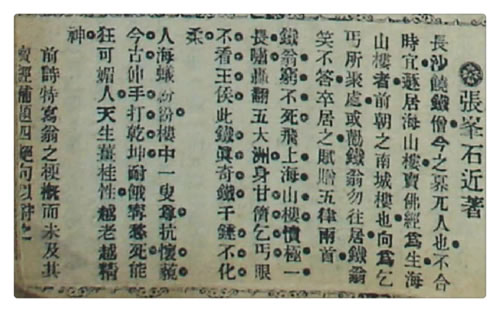 張峯石近著
長沙饒鐵僧今之兀人也不合
時宜遯居海山樓賣佛經爲生海
山樓者前朝之南城樓也向爲乞
丐所聚處或勸鐵翁勿往居鐵翁
笑不答卒居之賦贈五律兩首
鐵翁窮不死飛上海山樓憤極一
長嘯掀翻五大洲身甘儕乞丐眼
不看王侯此鐵眞奇鐵千鎚不化
柔
人海蟻紛紛樓中一叟尊抗懷藐
今古伸手打乾坤耐餓甯愁死能
狂可媚人天生薑桂性越老越精
神
前詩特寫翁之梗概而未及其
賣經補題四絕句以之